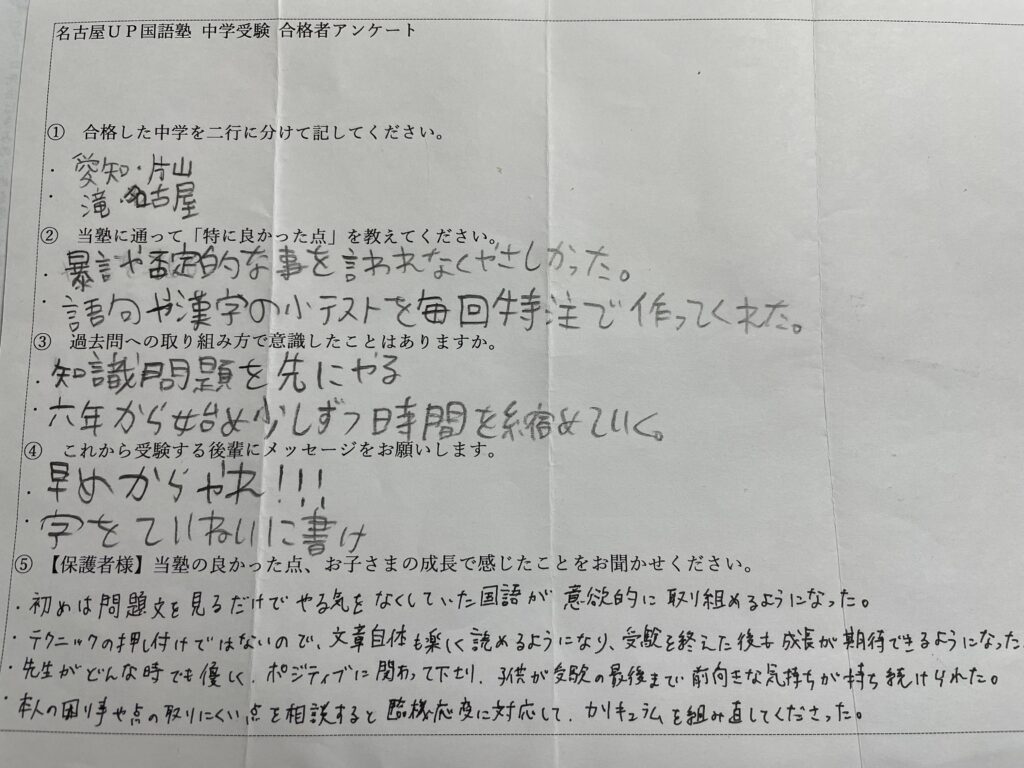 名古屋ＵＰ国語塾 中学受験 合格者アンケート
① 合格した中学を二行に分けて記してください。
・愛知・片山
・滝・名古屋
② 当塾に通って「特に良かった点」を教えてください。
・暴言や否定的な事を言われなくやさしかった。
・語句や漢字の小テストを毎回特注で作ってくれた。
③ 過去問への取り組み方で意識したことはありますか。
・知識問題を先にやる
・六年から始め少しずつ時間を縮めていく。
④ これから受験する後輩にメッセージをお願いします。
・早めからやれ!!!
・字をていねいに書け
⑤ 【保護者様】当塾の良かった点、お子さまの成長で感じたことをお聞かせください。
・初めは問題文を見るだけでやる気をなくしていた国語が意欲的に取り組めるようになった。
・テクニックの押し付けではないので、文章自体も楽しく読めるようになり、受験を終えた後も成長が期待できるようになった
・先生がどんな時でも優しく、ポジティブに関わって下さり、子供が受験の最後まで前向きな気持ちが持ち続けられた。
・本人の困り事や点の取りにくい点を相談すると臨機応変に対応して、カリキュラムを組み直してくださった。